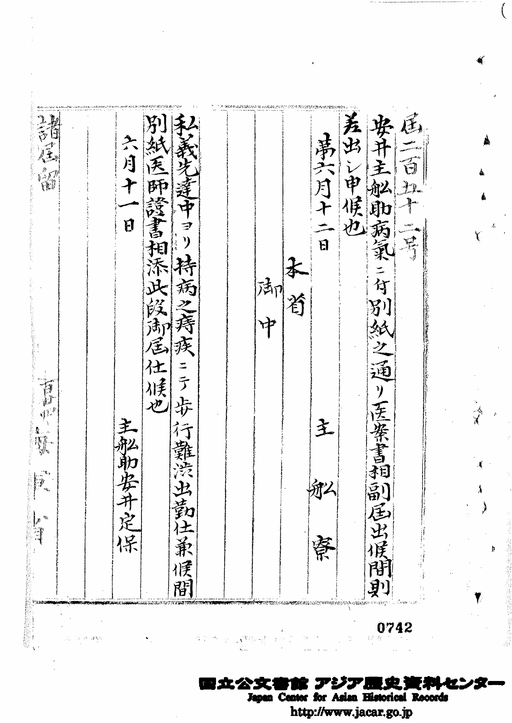 届二百五十二号
安井主船助病氣ニ付別紙之通リ医案書相副届出候間則
差出シ申候也
第六月十二日
主船寮
本省
御中
私義先達中ヨリ持病之痔疾ニテ歩行難渋出勤仕兼候間
別紙医師證書相添此段御届仕候也
六月十一日
主船助安井定保
諸届留
海軍省
0742
国立公文書館 アジア歴史資料センター
Japan Center for Asian Historical Records
http://www.jacar.go.jp